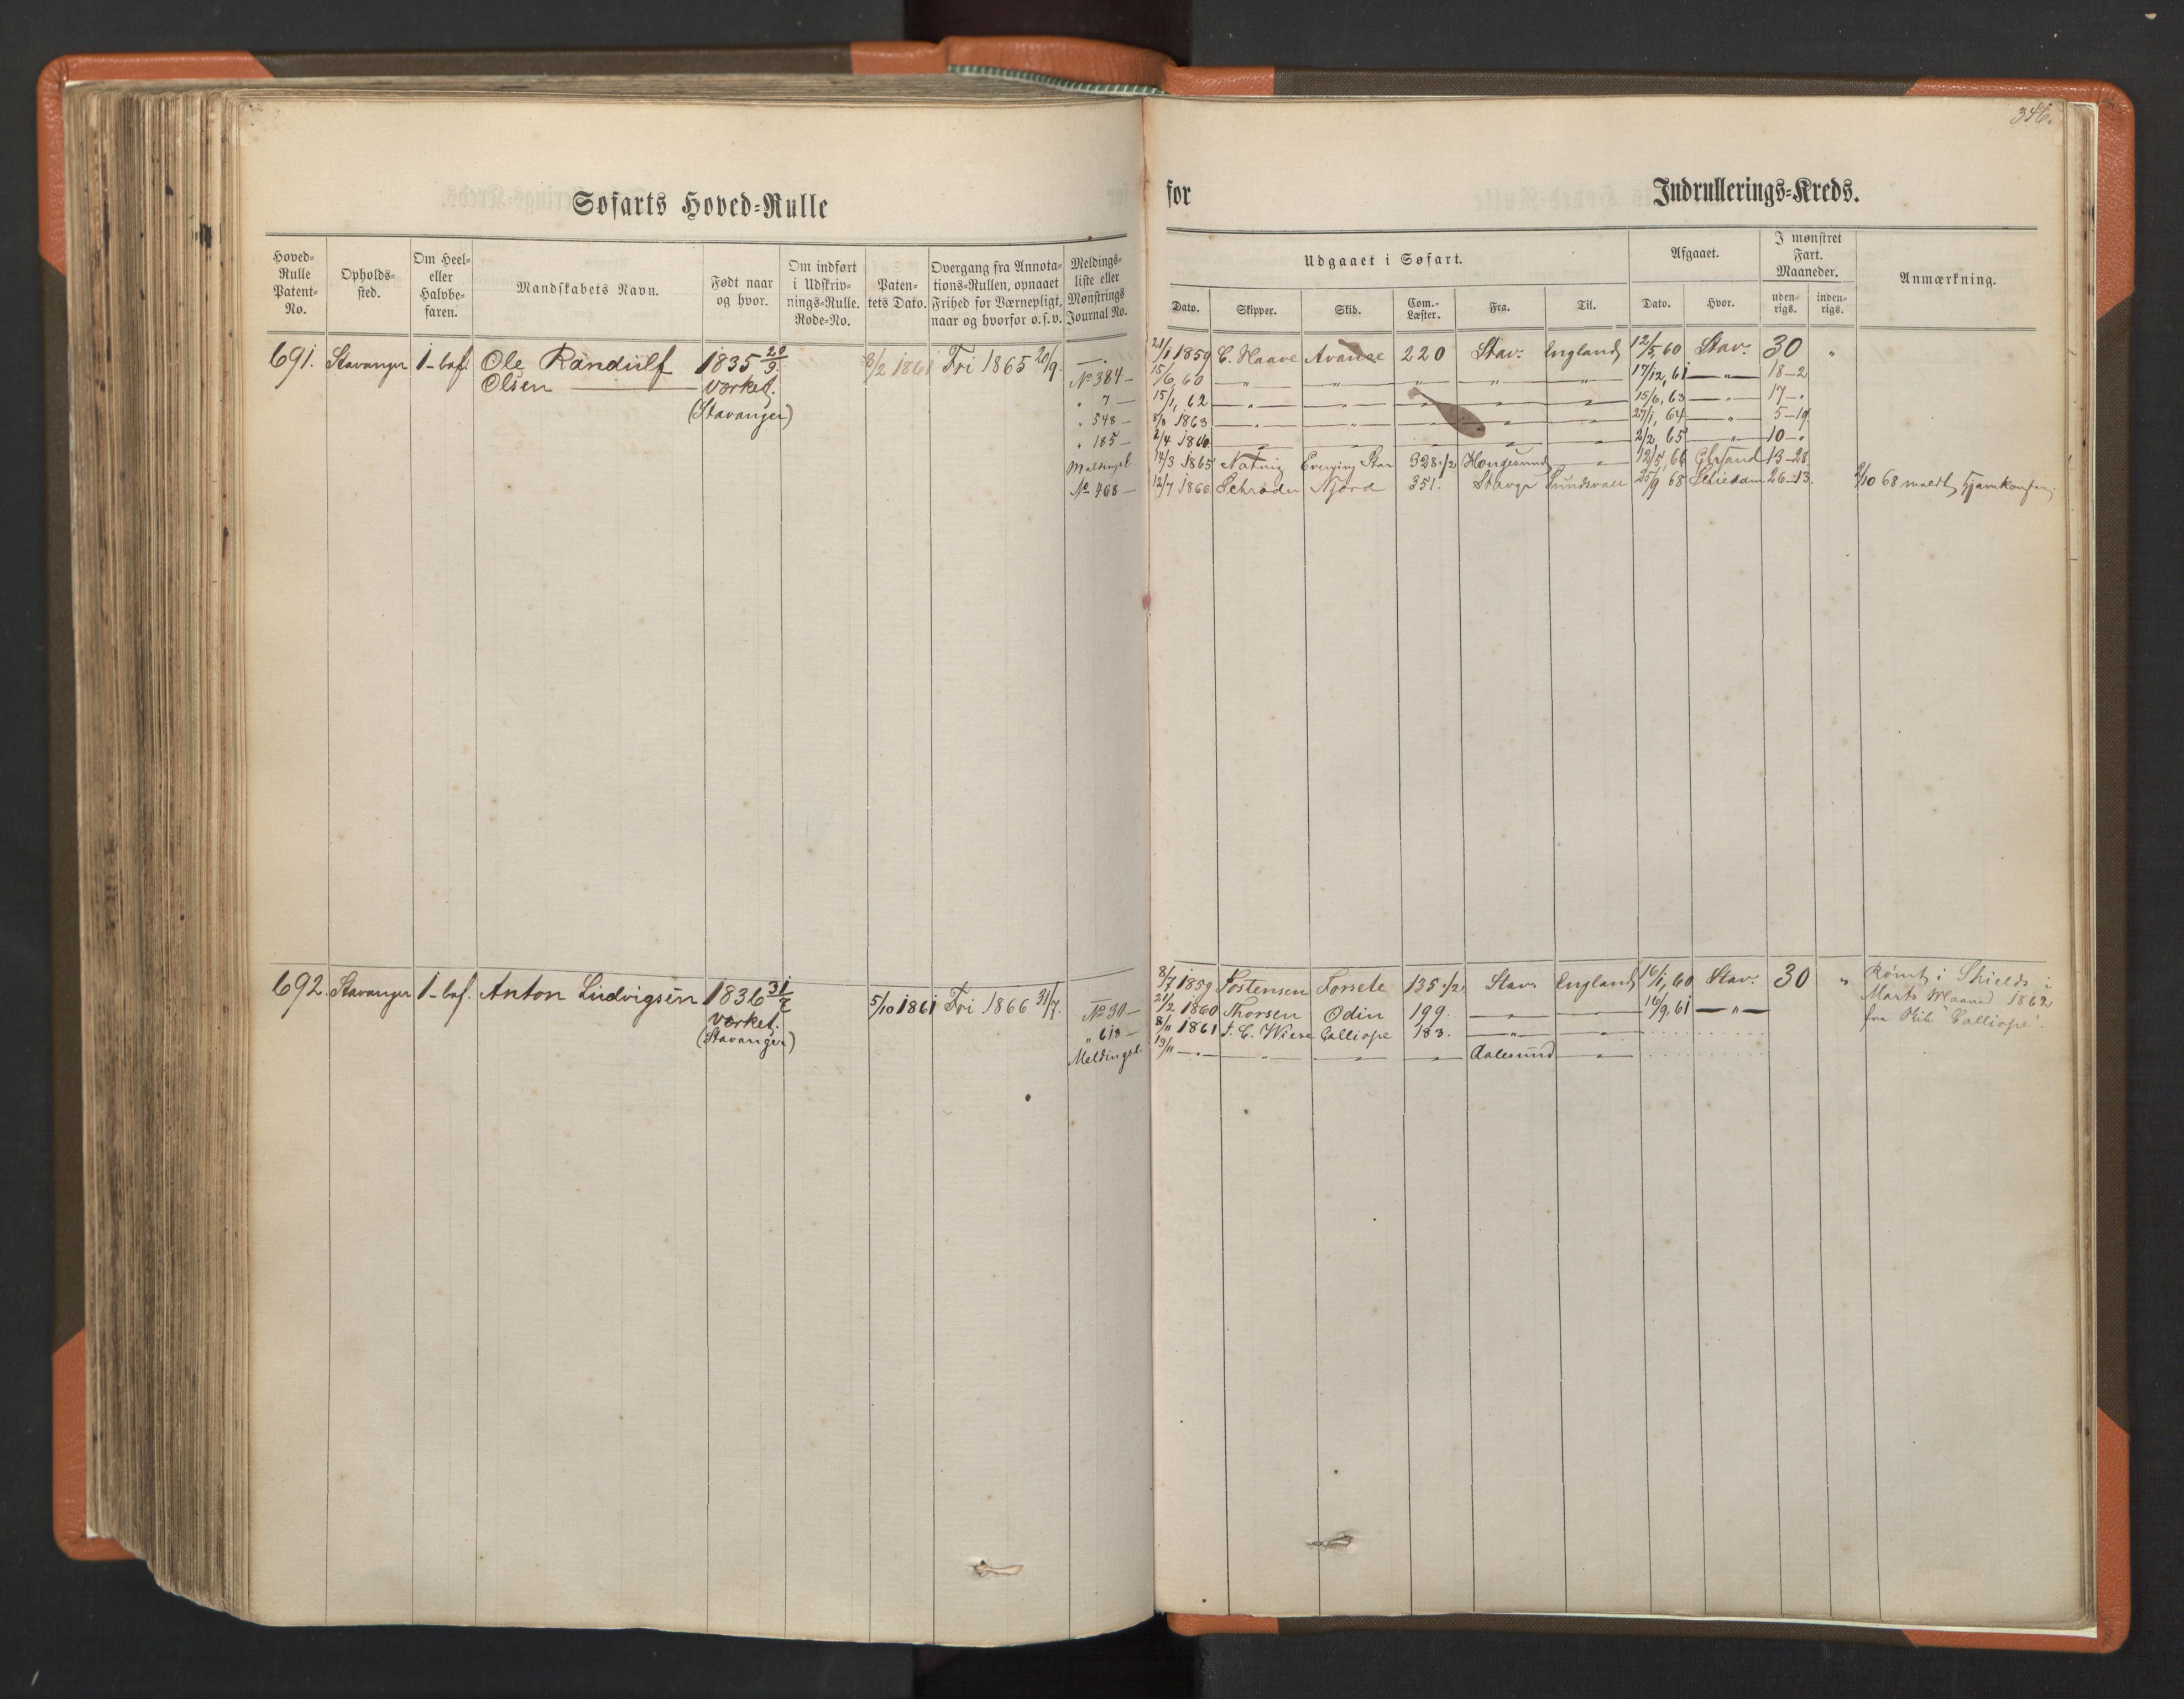 346.
Søfarts Hoved-Rulle
for Indrullerings-Kreds.
Hoved-Rulle Patent-No.
Opholds-sted.
Om Heel- eller Halvbe-faren.
Mandskabets Navn.
Født naar og hvor.
Om indført i Udskriv-nings-Rulle. Rode-No.
Paten-tets Dato.
Overgang fra Annota-tions-Rullen, opnaaet Frihed for Værnepligt, naar og hvorfor o.s.v.
Meldings-liste eller Mønstrings Journal No.
Udgaaet i Søfart.
Dato. Skipper. Skib. Com.-Læster. Fra. Til.
Afgaaet.
Dato. Hvor.
I mønstret Fart. Maaneder.
uden-rigs. inden-rigs.
Anmærkning.
691. Stavanger 1-bef. Ole Randulf 1835 20/9 8/2 1861 Fri 1865 20/9. —.
Olsen — værket.
(Stavanger)
No 384 —
" 7 —
" 548 —
" 185 —
Meldingsl.
No 408 —
21/1 1859 C. Haave Avance 220 Stav. England 12/5, 60 Stav. 30 "
15/6, 60 " " " " " 17/12, 61 " 18-2
15/1, 62 " " " " " 15/6, 63 " 17-"
8/8 1863 " " " " " 27/1, 64 " 5-19
2/4 186 " " " " " 2/2, 65 " 10-"
14/3 1865 Natvig Evening Star 328 1/2 Haugesund " 12/5, 66 Chrsand 13-28
12/7 1866 Schrøder Njord 351. Stavgr Sundsvall 25/9 68 Schiedam 26-13. 2/10 68 meldt
692. Stavanger 1-bef. Anton Ludvigsen 1836 31/7 5/10 1861 Fri 1866 31/7.
værket.
(Stavanger)
No 30 —
" 618 —
Meldingsl.
8/7 1859 Tostensen Forsete 135 1/2 Stav. England 16/1, 60 Stav. 30 "
21/2 1860 Thorsen Odin 199. " " 16/9, 61 "
8/11 1861 J. C. Wiese Calliope 183. " "
19/11 — " " " " Aalesund "
Rømt i Shields i
Marts Maaned 1862
fra Skib "Calliope".